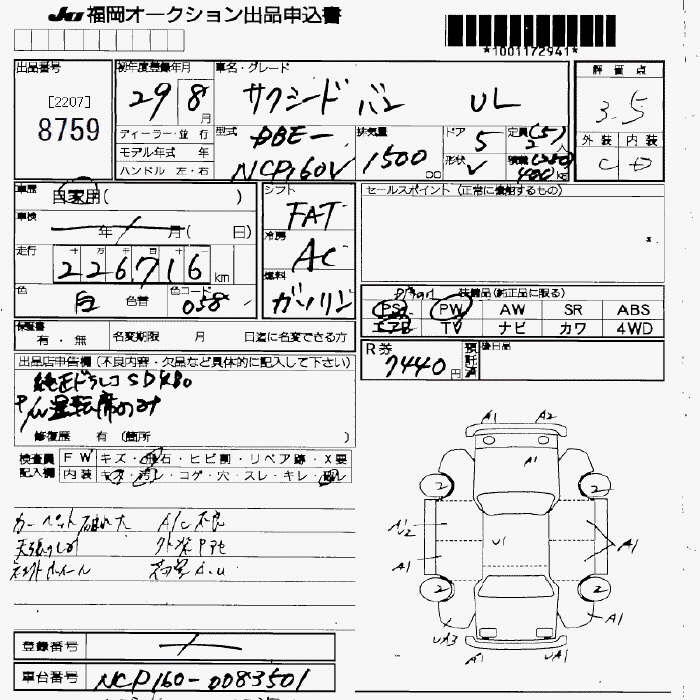 JU 福岡オークション出品申込書
*1001172941*
出品番号
[2207]
8759
初年度登録年月
29 8 月
車名・グレード
サクシード バン UL
評価点
3.5
外装 内装
C D
ディーラー・並行
モデル年式 年
ハンドル 左・右
型式
DBE-
NCP160V
排気量
1500 cc
ドア
5
形状
V
定員(5)
2人
積載(250)
400 KG
車歴
自家用( )
車検
年 月( 日)
走行
十 万 千 百 十
226716 km
色
白
色替
色コード
058
シフト
FAT
冷房
AC
燃料
ガソリン
セールスポイント (正常に機能するもの)
装備品(純正品に限る)
PS PW AW SR ABS
エアB TV ナビ カワ 4WD
保証書
有・無
名変期限 月 日迄に名変できる方
R券
7440円
預託済
後日品
出品店申告欄 (不良内容・欠品など具体的に記入して下さい)
純正ドラレコ SD欠品
P/W運転席のみ
修復歴 有 (箇所 )
検査員記入欄
FW キズ・飛石・ヒビ割・リペア跡・X要
内装 キズ・汚レ・コゲ・穴・スレ・キレ・破レ
カーペット破れ大 A/C不良
天張り
外装
A1 A2
A1
2 2
A1
U2
U1
A1
A1
2 2
UA3
A1
A1 U1
登録番号
車台番号 NCP160-0083501